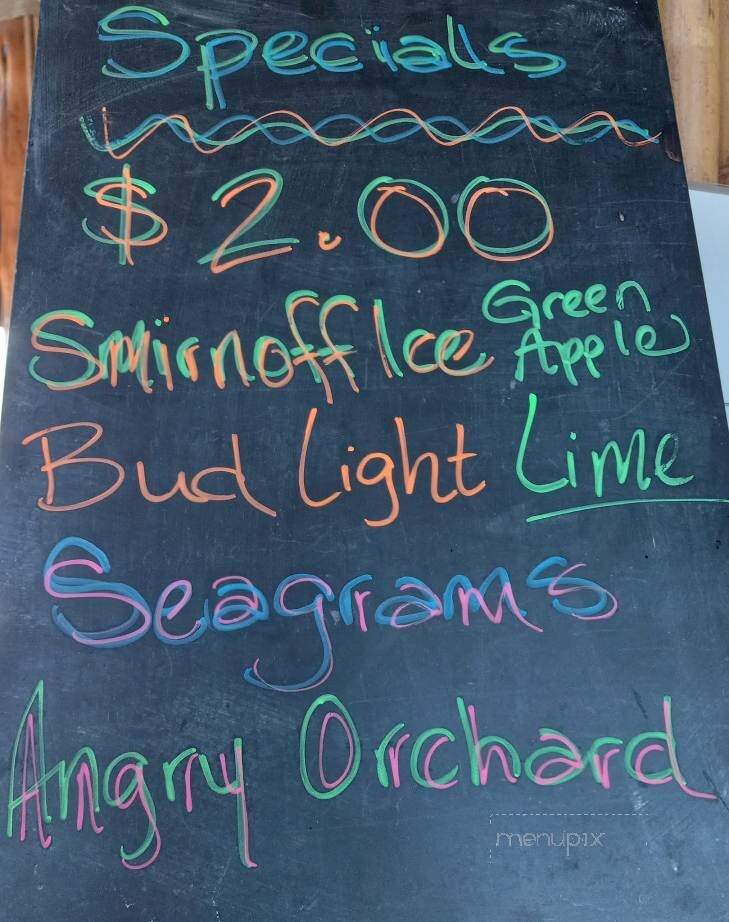 Specials
$2.00
Smirnoff Ice Green Apple
Bud Light Lime
Seagrams
Angry Orchard
menupix